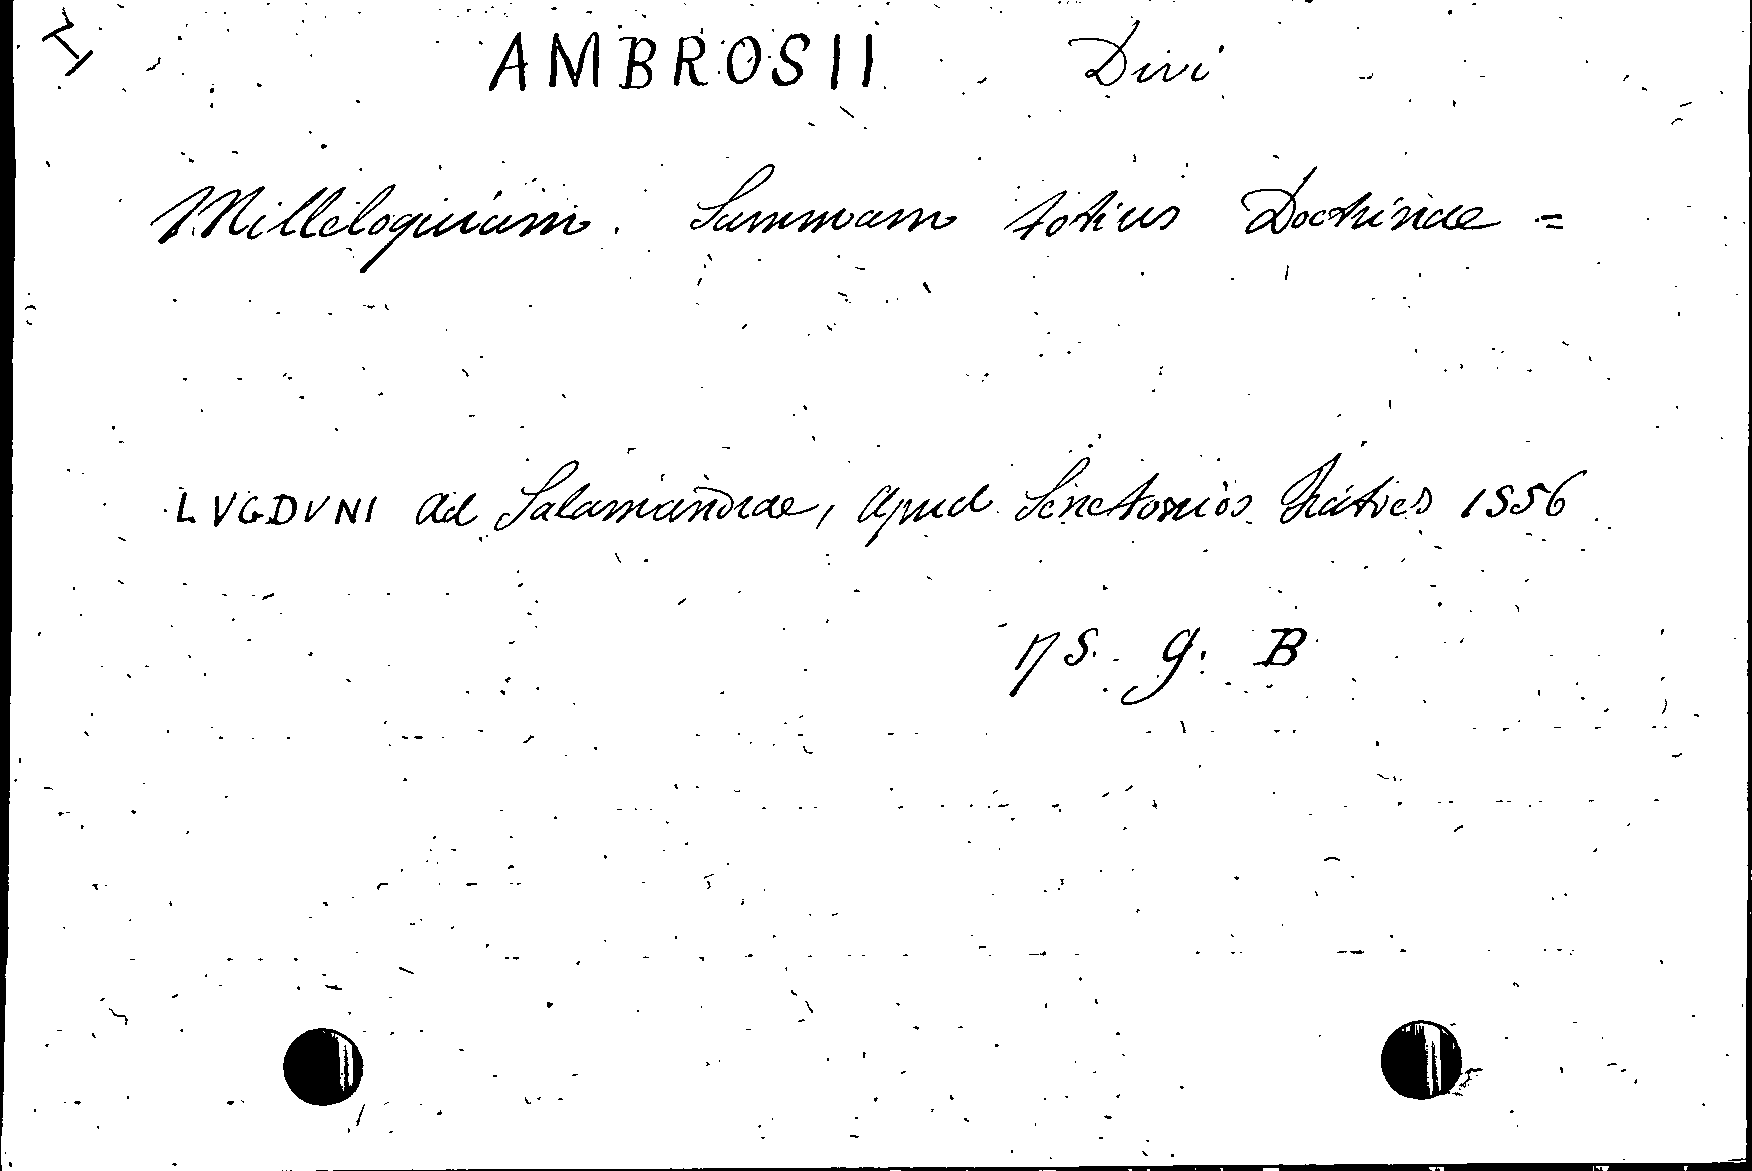 AMBROSII Divi
Milleloquium. Summam totius Doctrinae =
LVGDVNI ad Salamandrae, apud Senetonios Fratres 1556
ps. g. B